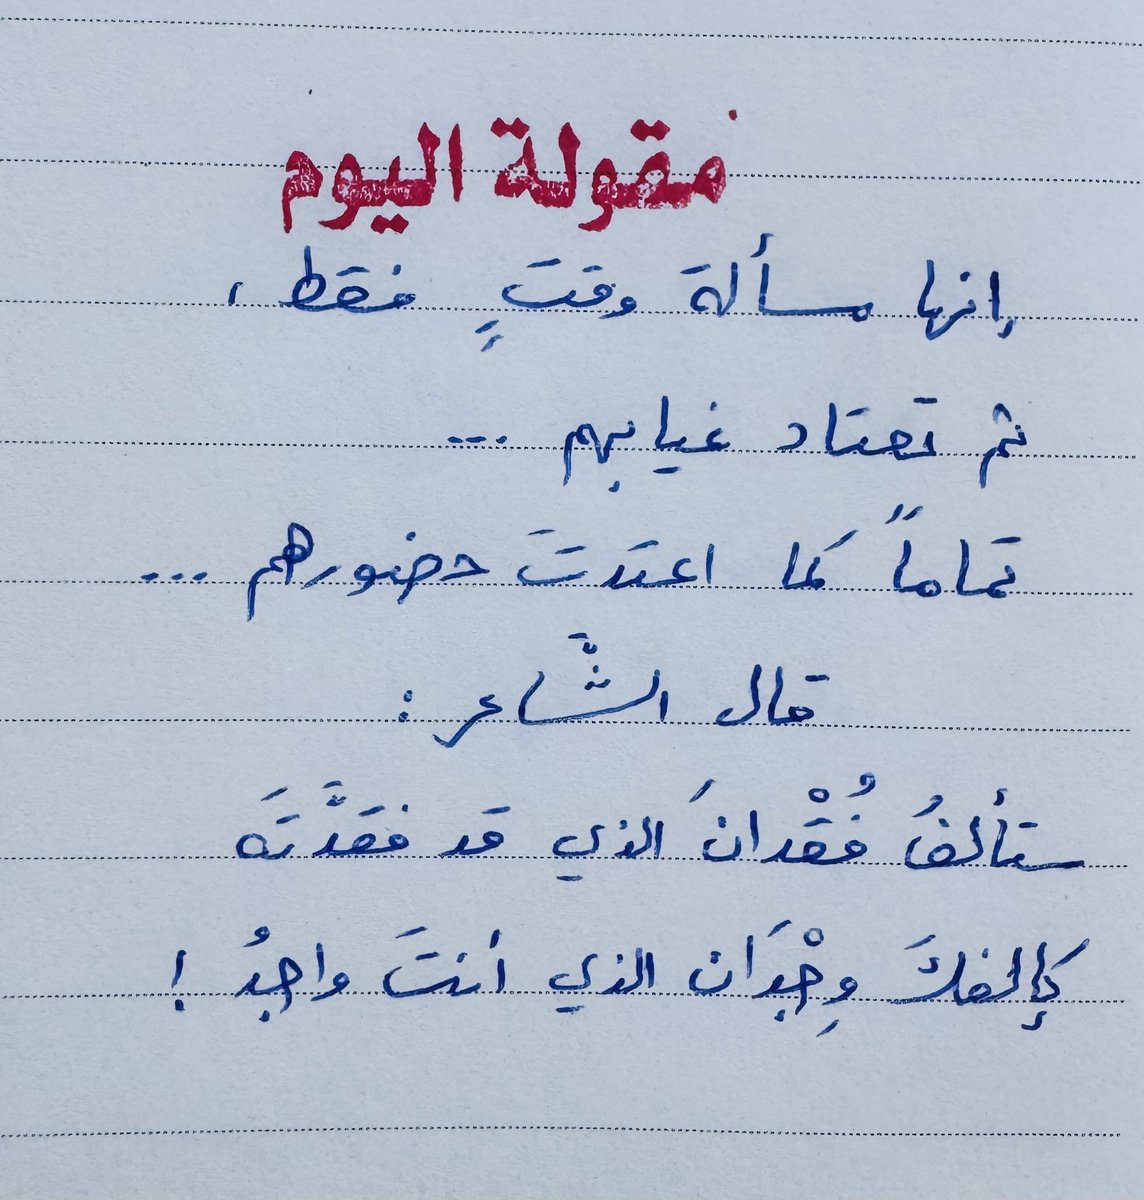 مقولة اليوم
إنها مسألة وقتٍ فقط ،
ثم تعتاد غيابهم ...
تماماً كما اعتدتَ حضورهم ...
قال الشّاعر :
ستألفُ فُقْدانَ الذي قد فقَدَّتَه
كإلفكَ وِجْدَان الذي أنتَ واجدُ !